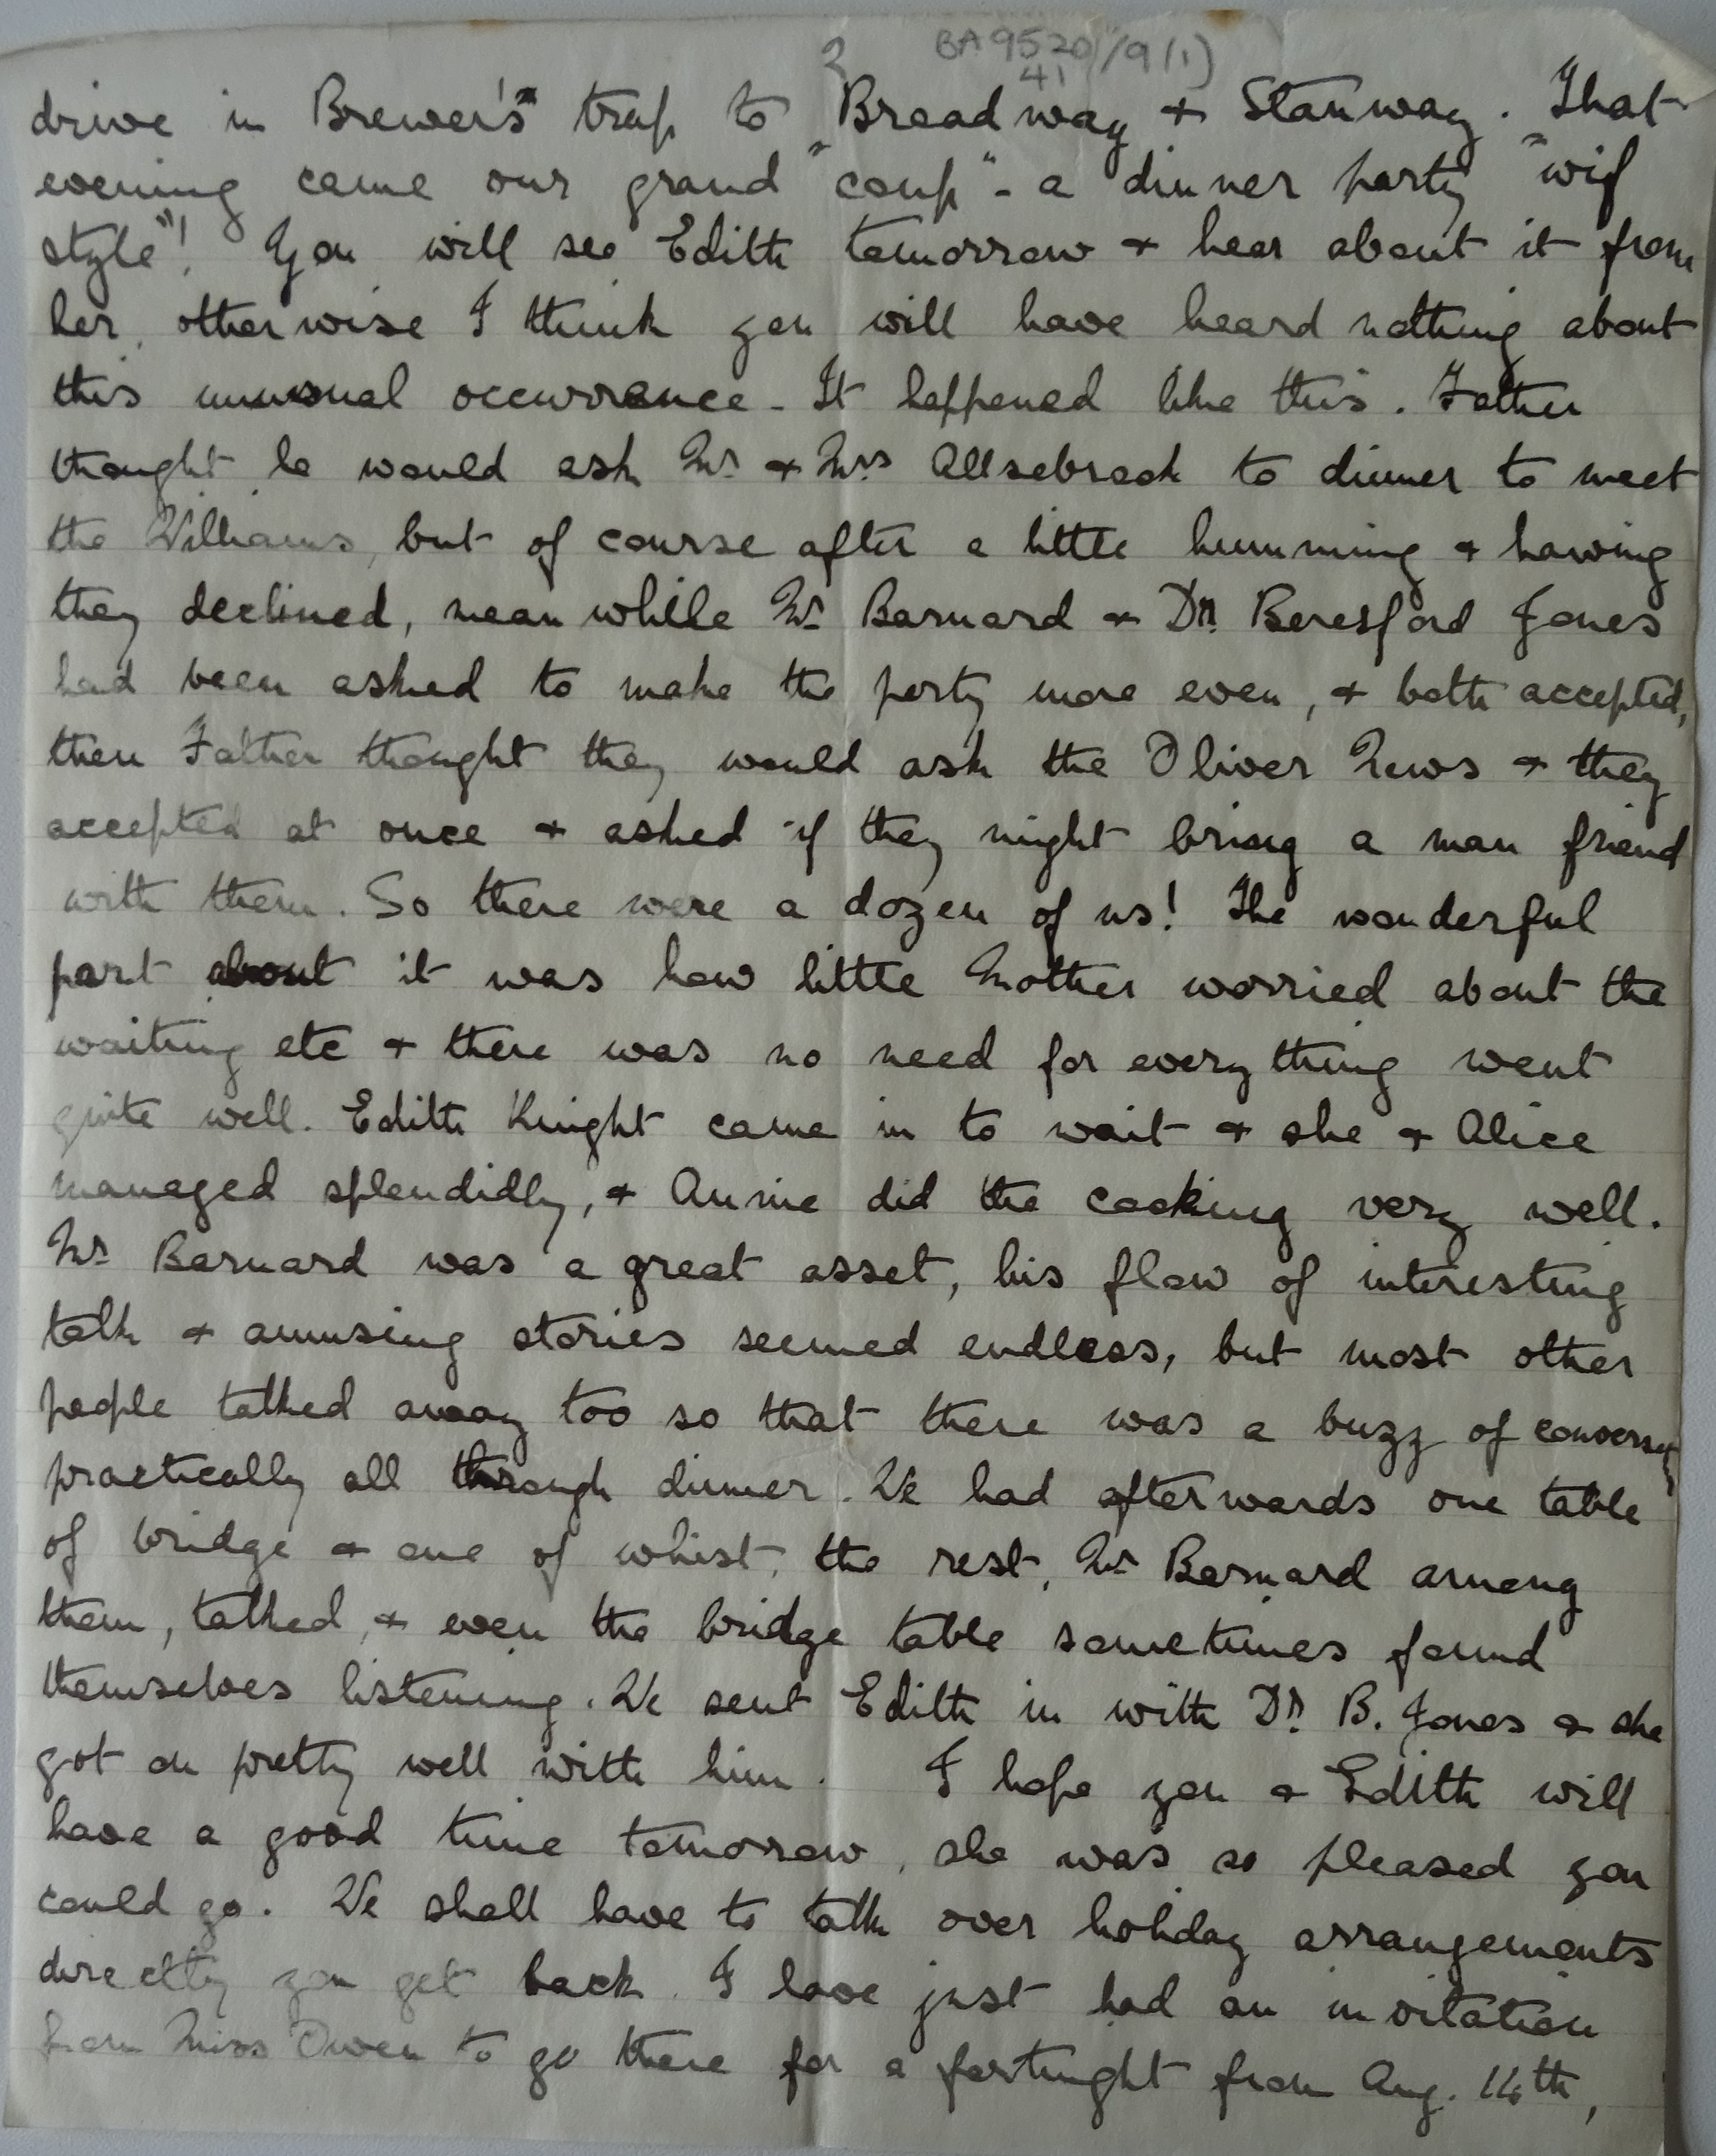 2 BA9520/9(1)
41
drive in Brewer's trap to Broadway & Stanway. That
evening came our grand "coup" - a dinner party "wif
style"! You will see Edith tomorrow & hear about it from
her, otherwise I think you will have heard nothing about
this unusual occurrence - It happened like this. Father
thought he would ask Mr & Mrs Allsebrook to dinner to meet
the Williams, but of course after a little humming & hawing
they declined, mean while Mr Barnard & Dr. Beresford Jones
had been asked to make the party more even, & both accepted,
then Father thought they would ask the Oliver News & they
accepted at once & asked if they might bring a man friend
with them. So there were a dozen of us! The wonderful
part about it was how little Mother worried about the
waiting etc & there was no need for everything went
quite well. Edith Knight came in to wait & she & Alice
managed splendidly, & Annie did the cooking very well.
Mr Barnard was a great asset, his flow of interesting
talk & amusing stories seemed endless, but most other
people talked away too so that there was a buzz of conversatn
practically all through dinner. We had afterwards one table
of bridge & one of whist, the rest, Mr Barnard among
them, talked, & even the bridge table sometimes found
themselves listening. We sent Edith in with Dr. B. Jones & she
got on pretty well with him. I hope you & Edith will
have a good time tomorrow, she was so pleased you
could go. We shall have to talk over holiday arrangements
directly you get back. I have just had an invitation
from Miss Owen to go there for a fortnight from Aug. 14th,